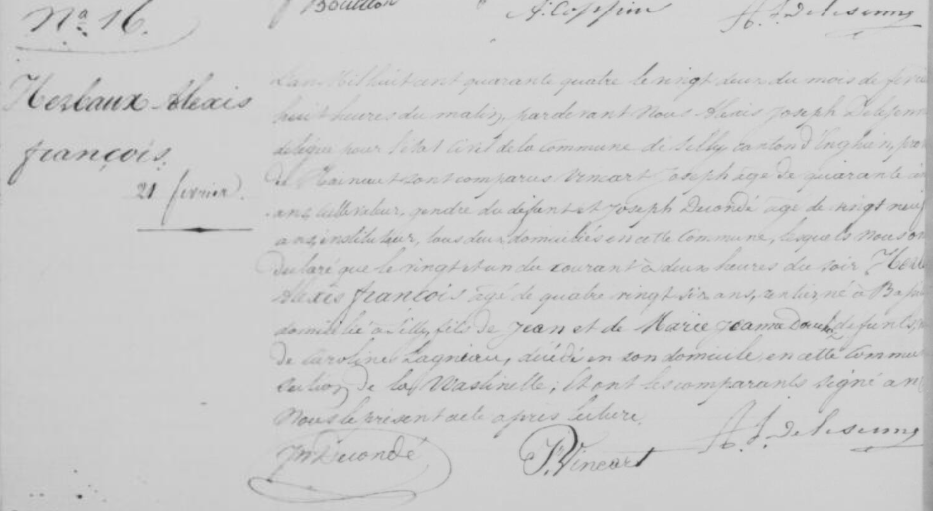 Bouillon A. Coppin A. J. Delesenne
Nº 16.
Herbaux Alexis
françois.
21 fevrier.
L'an Mil huit cent quarante quatre le vingt deux du mois de fevri
huit heures du matin, pardevant Nous Alexis Joseph Delesenne
délégué pour l'état civil de la commune de Silly canton d'Enghien, pro
de Hainaut sont comparus Vinart Joseph âgé de quarante
ans, cultivateur, gendre du défunt et Joseph Decondé âgé de vingt neuf
ans, instituteur, tous deux domiciliés en cette Commune, lesquels Nous on
déclaré que le vingt et un du courant à deux heures du soir, Herb
Alexis françois âgé de quatre vingt six ans, rentier, né à
domicilié à Silly, fils de Jean et de Marie Jeanne défunts,
de Caroline Lagneau, décédé en son domicile en cette Commu
section de la Waslinette; Et ont les comparants signé a
Nous le présent acte après lecture.
Jh Decondé J. Vincart A. J. Delesenne